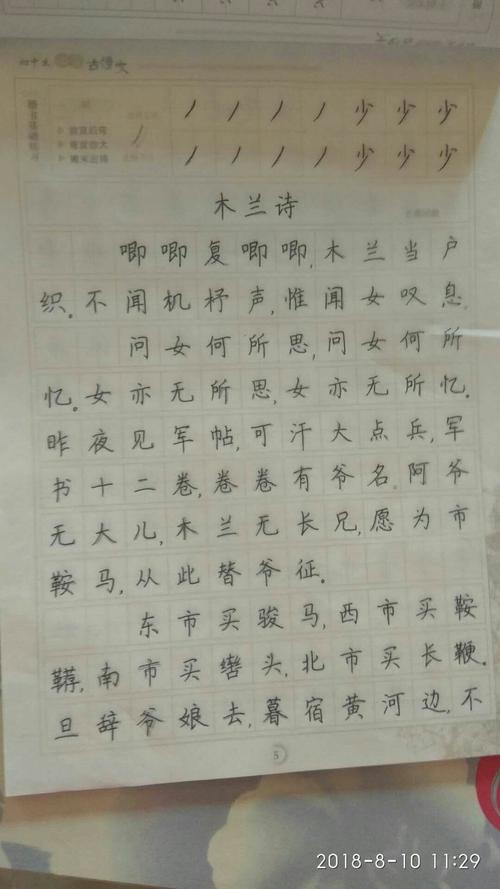 古诗文
丿 丿 丿 丿 少 少 少
丿 丿 丿 丿 少 少 少
木兰诗
唧唧复唧唧,木兰当户
织。不闻机杼声,惟闻女叹息.
问女何所思,问女何所
忆。女亦无所思,女亦无所忆。
昨夜见军帖,可汗大点兵,军
书十二卷,卷卷有爷名.阿爷
无大儿,木兰无长兄,愿为市
鞍马,从此替爷征。
东市买骏马,西市买鞍
鞯,南市买辔头,北市买长鞭。
旦辞爷娘去,暮宿黄河边,不
5
2018-8-10 11:29